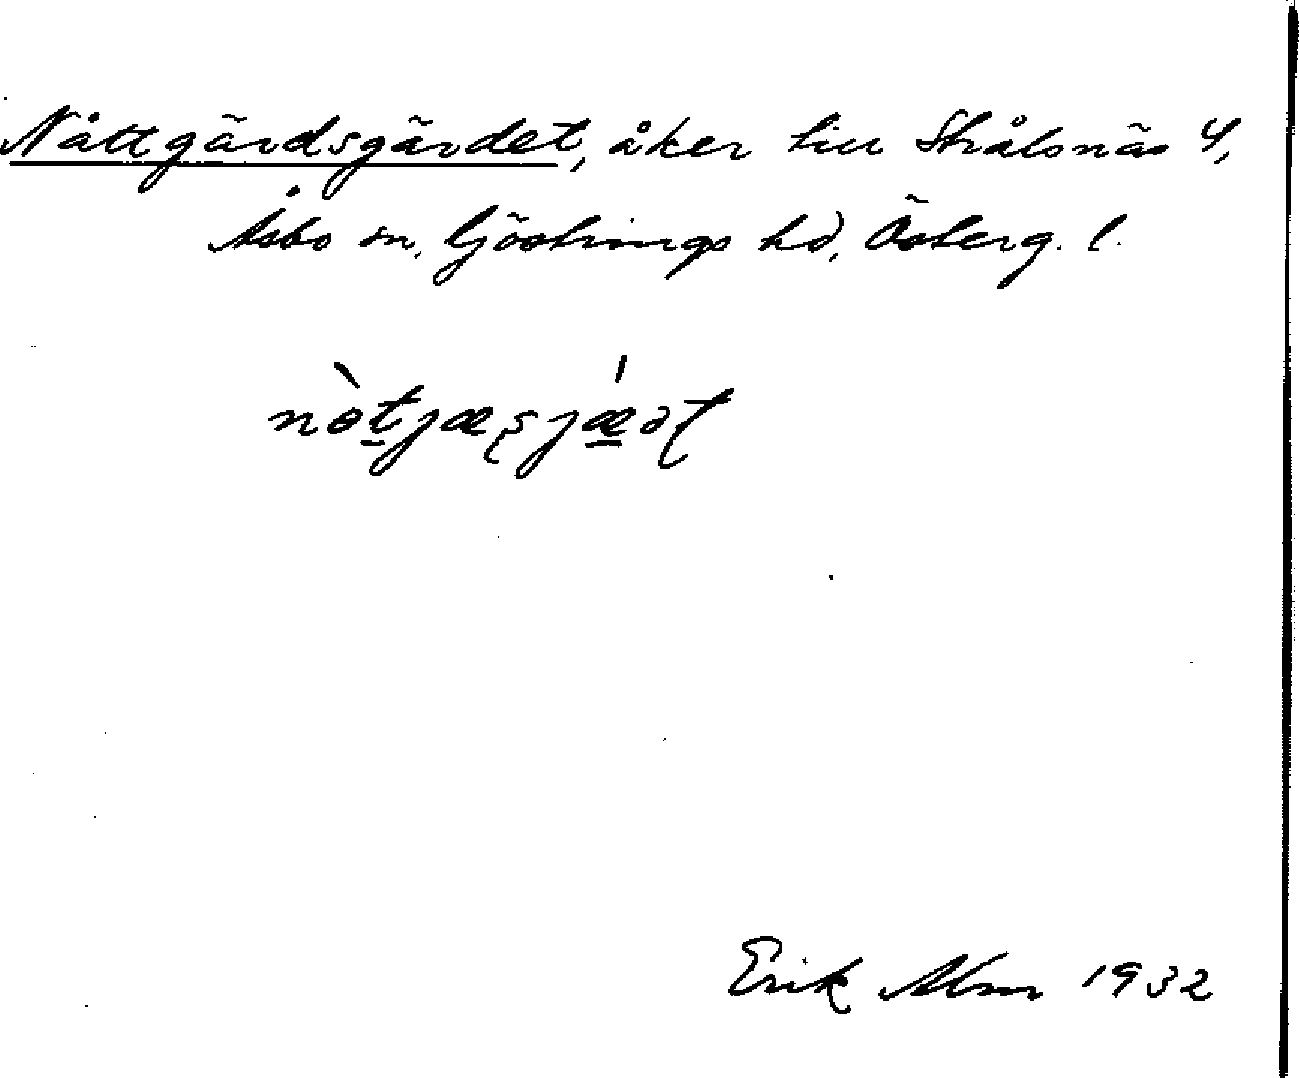 Nåttgärdsgärdet, åker till Strålsnäs 4,
Åsbo sn, Göstrings hd, Österg. l.
Erik Alm 1932